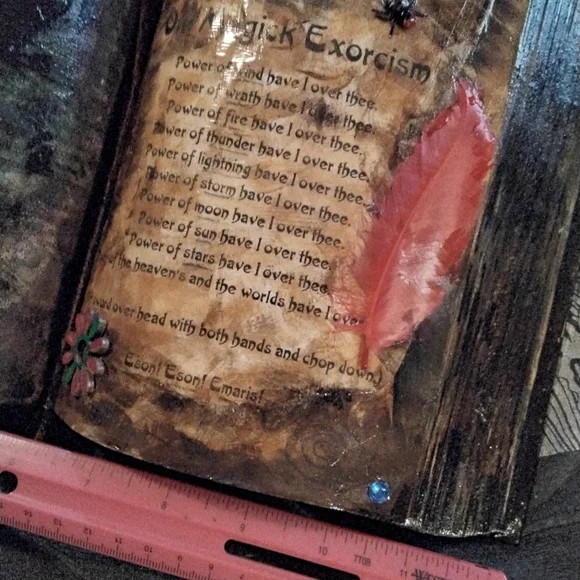 Old Magick Exorcism
Power of wind have I over thee.
Power of wrath have I over thee.
Power of fire have I over thee.
Power of thunder have I over thee.
Power of lightning have I over thee.
Power of storm have I over thee.
Power of moon have I over thee.
Power of sun have I over thee.
Power of stars have I over thee.
of the heaven's and the worlds have I over
over head with both hands and chop down.)
Eson! Eson! Emaris!
7
8
9
10
11
14
13
12
11
10
9
8